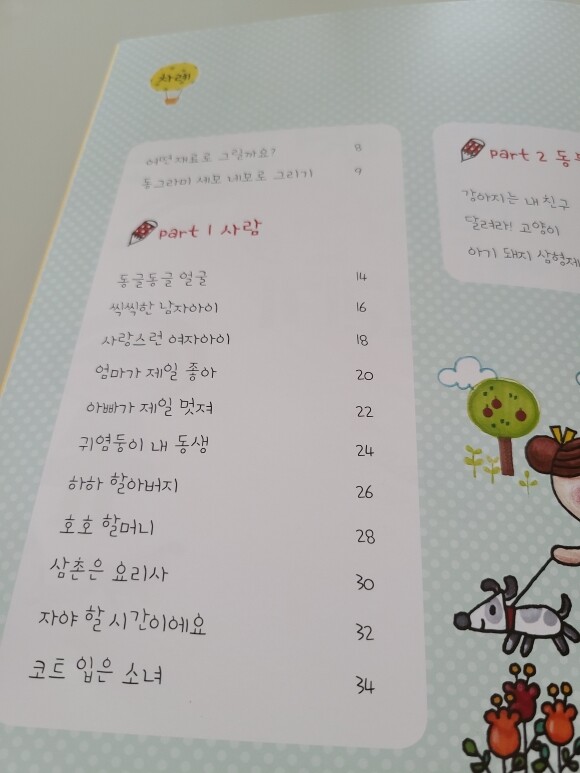 차례
어떤 재료로 그릴까요? 8
동그라미 세모 네모로 그리기 9
part 1 사람
동글동글 얼굴 14
씩씩한 남자아이 16
사랑스런 여자아이 18
엄마가 제일 좋아 20
아빠가 제일 멋져 22
귀염둥이 내 동생 24
하하 할아버지 26
호호 할머니 28
삼촌은 요리사 30
자야 할 시간이에요 32
코트 입은 소녀 34
part 2 동
강아지는 내 친구
달려라! 고양이
아기 돼지 삼형제